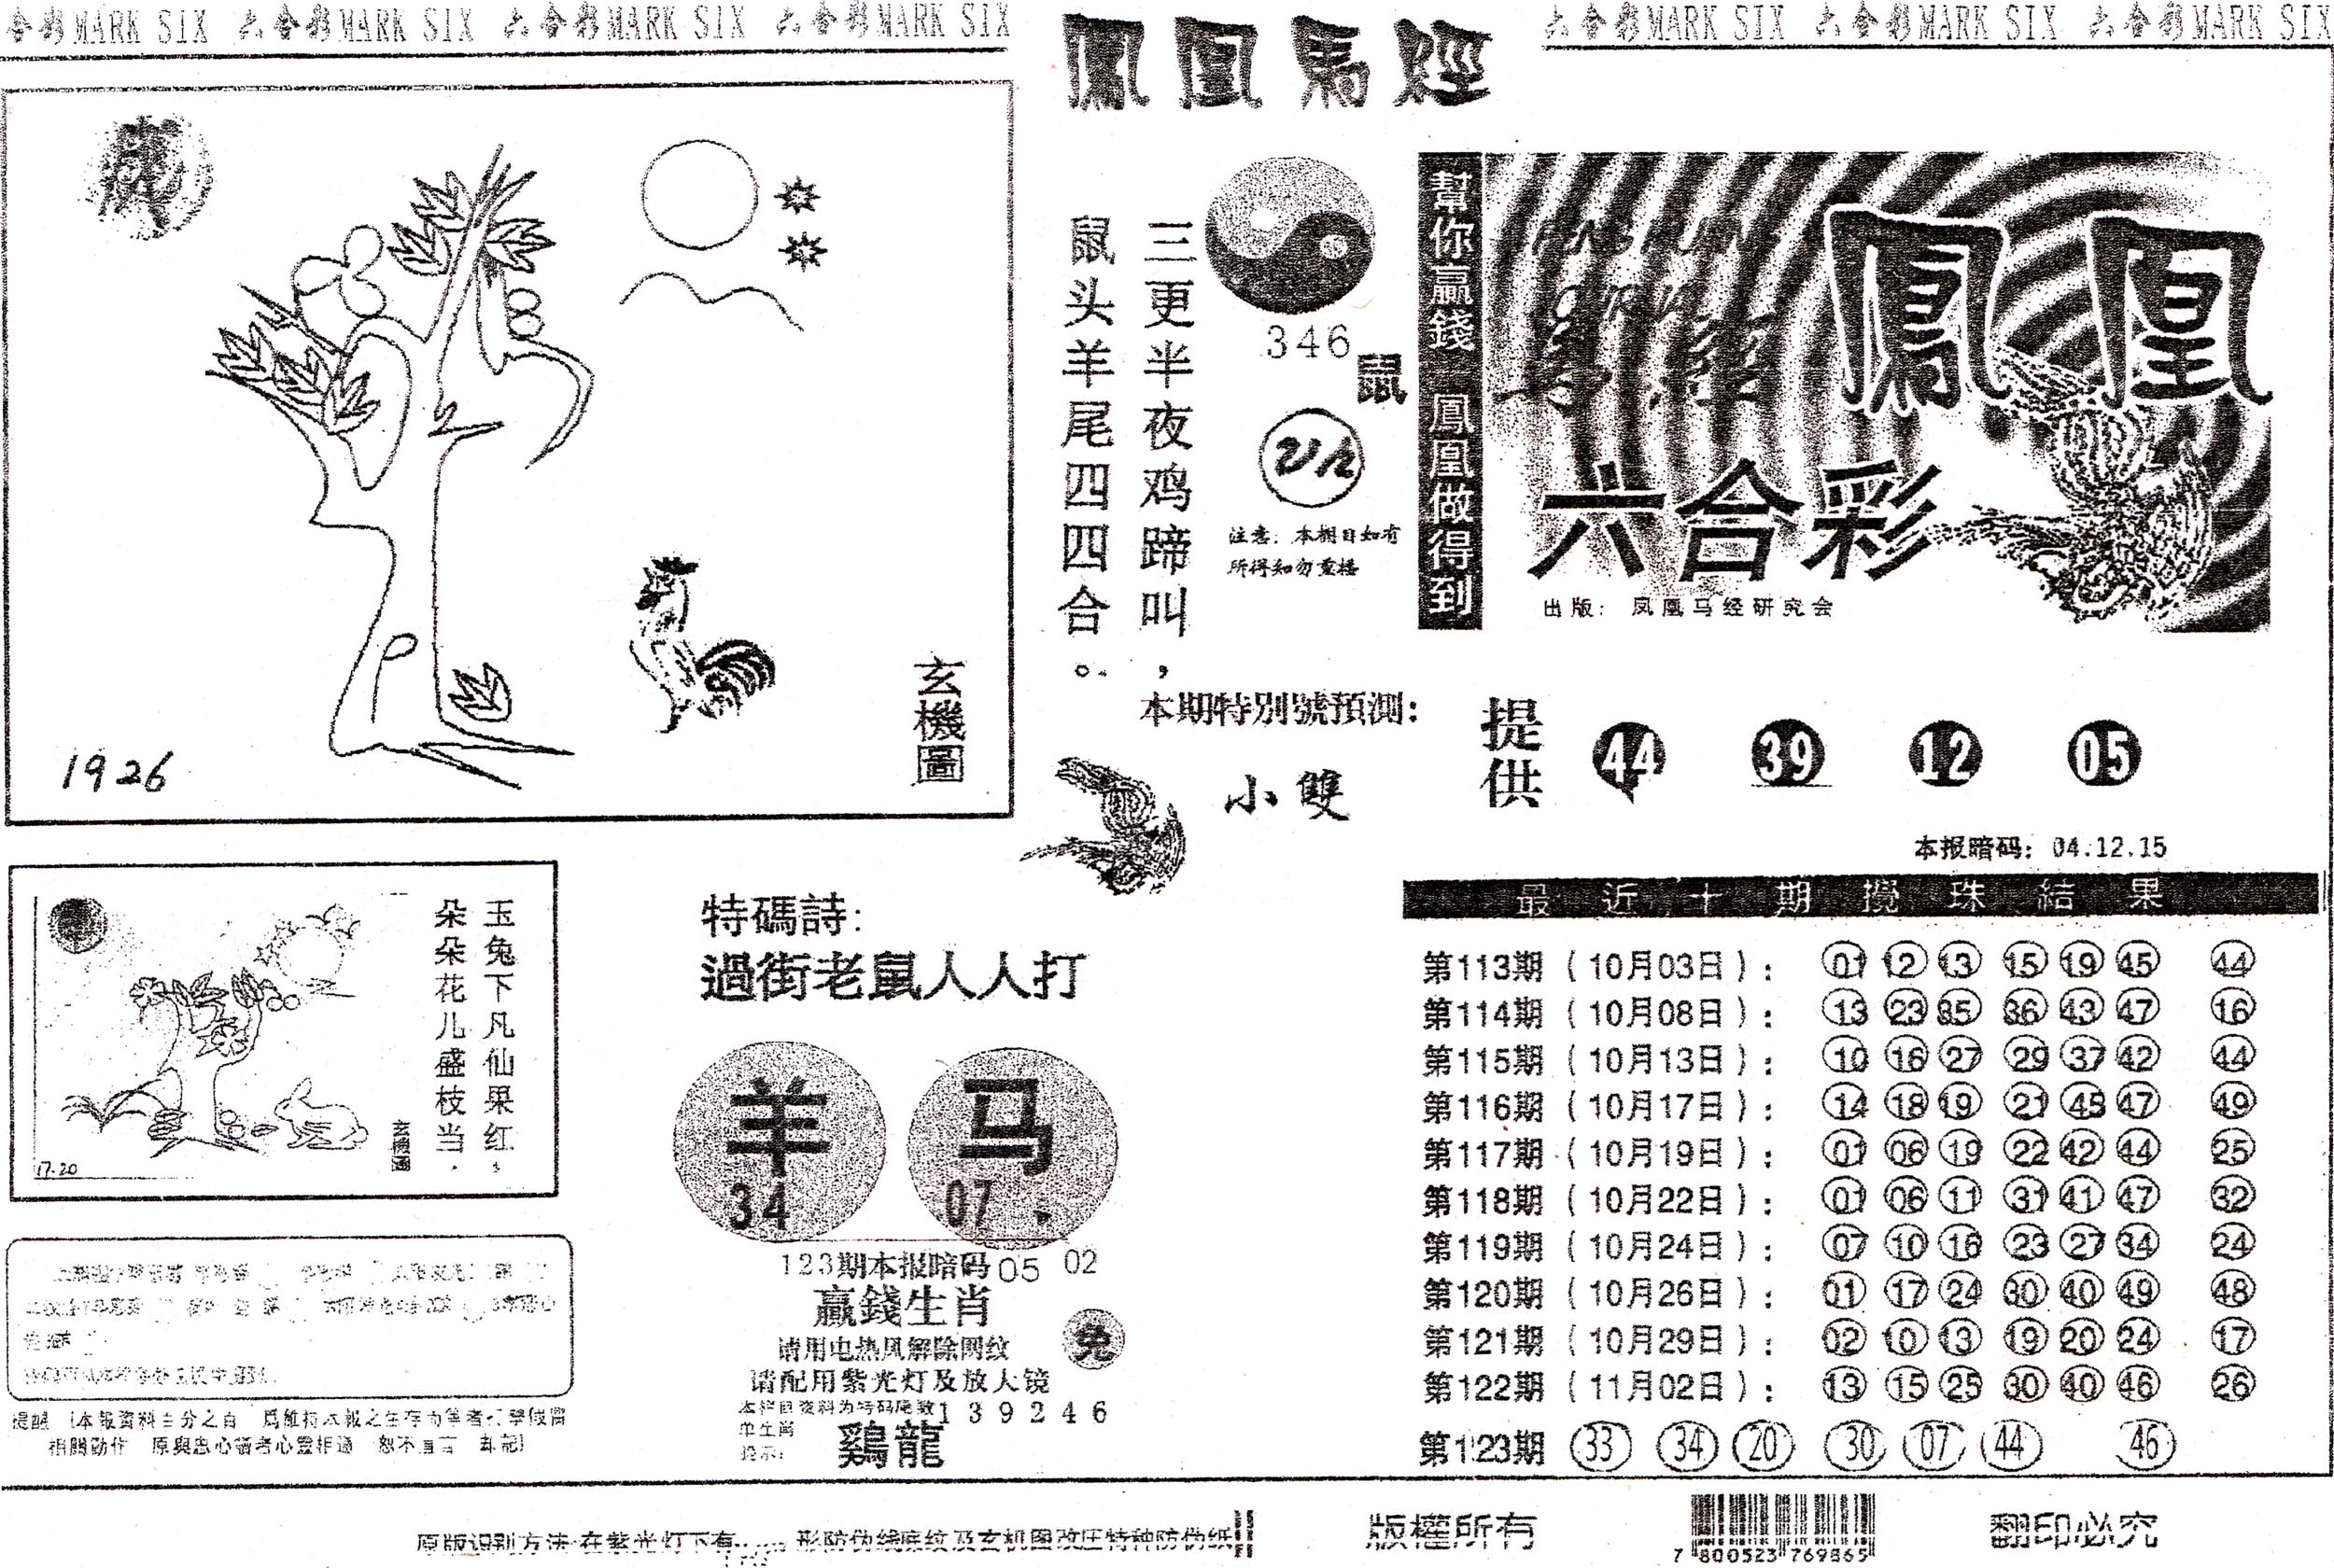 合彩MARK SIX 六合彩MARK SIX 六合彩MARK SIX 六合彩MARK SIX
鳳凰馬經
六合彩MARK SIX 六合彩MARK SIX 六合彩MARK SIX
1926
玄機圖
三更半夜鸡蹄叫，
鼠头羊尾四四合。
346
鼠
注意：本期日如有
所得知勿重播
幫你贏錢 鳳凰做得到
鳳凰
六合彩
出版：凤凰马经研究会
本期特别號預測：
小雙
提供
44 39 12 05
本报暗码：04.12.15
玉兔下凡仙果红，
朵朵花儿盛枝当．
玄機圖
17-20
特碼詩：
過街老鼠人人打
羊 马
34 07
123期本报暗码 05 02
贏錢生肖
请用电热风解除网纹
请配用紫光灯及放大镜
兔
本栏目资料为特码尾数 1 3 9 2 4 6
单生肖
提示：
鷄龍
最近十期搅珠結果
第113期（10月03日）： 01 12 13 15 19 45 44
第114期（10月08日）： 13 23 35 36 43 47 16
第115期（10月13日）： 10 16 27 29 37 42 44
第116期（10月17日）： 14 18 19 21 45 47 49
第117期（10月19日）： 01 06 19 22 42 44 25
第118期（10月22日）： 01 06 11 31 41 47 32
第119期（10月24日）： 07 10 16 23 27 34 24
第120期（10月26日）： 01 17 24 30 40 49 48
第121期（10月29日）： 02 10 13 19 20 24 17
第122期（11月02日）： 13 15 25 30 40 46 26
第123期 33 34 20 30 07 44 46
原版识别方法:在紫光灯下有 形防伪线底纹及玄机图改压特种防伪纸
版權所有
7 800523 769865
翻印必究